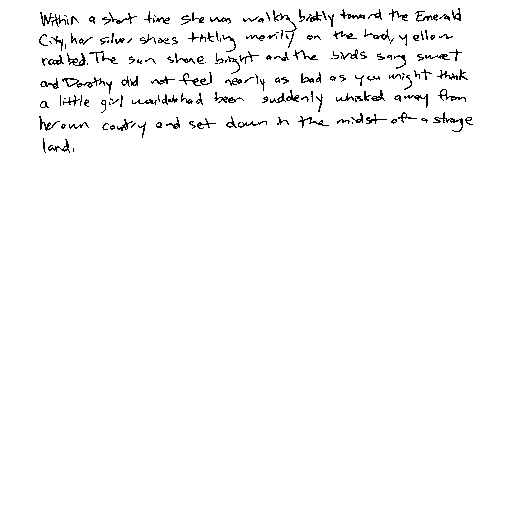 Within a short time she was walking briskly toward the Emerald
City, her silver shoes tinkling merrily on the hard, yellow
roadbed. The sun shone bright and the birds sang sweet
and Dorothy did not feel nearly as bad as you might think
a little girl would who had been suddenly whisked away from
her own country and set down in the midst of a strange
land.